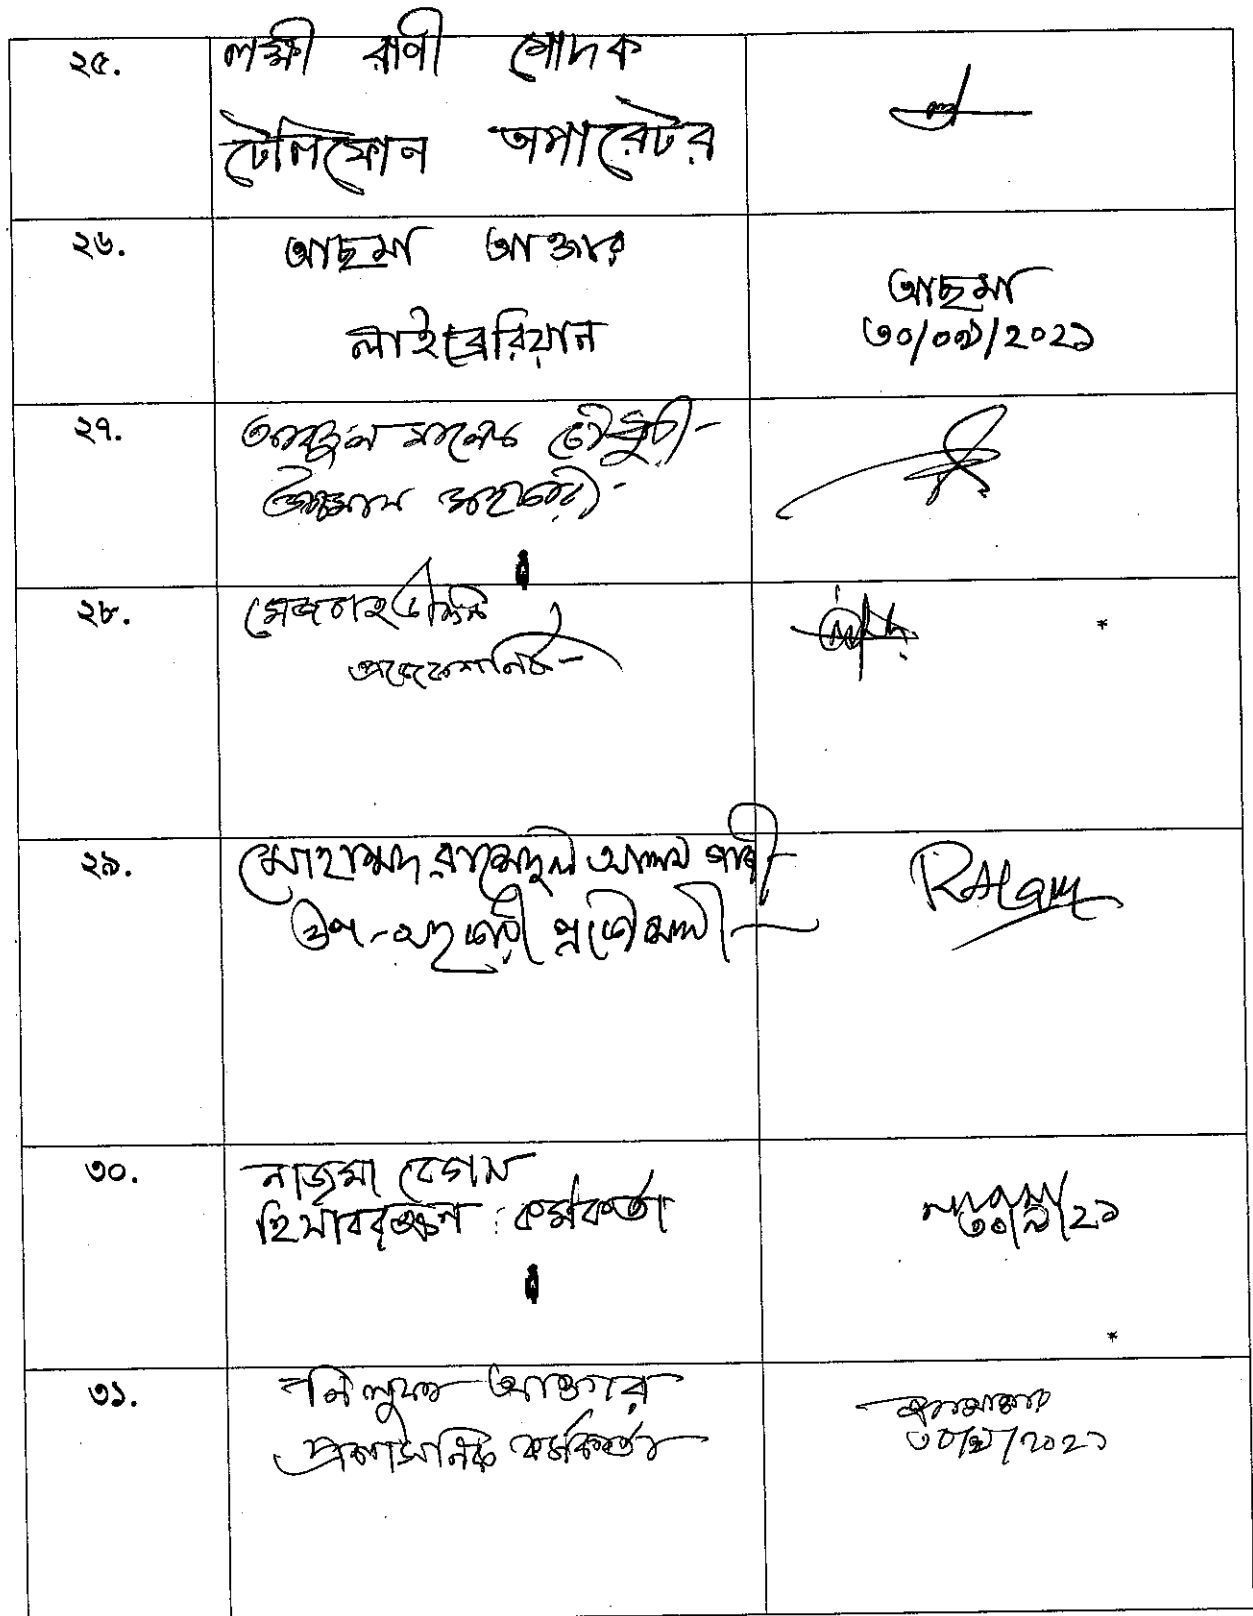 ২৫.
লক্ষী রানী মোদক
টেলিফোন অপারেটর
২৬.
আছমা আক্তার
লাইব্রেরিয়ান
আছমা
৩০/০৯/২০২১
২৭.
আবদুল মালেক চৌধুরী-
২৮.
মেজবাহ উদ্দিন
২৯.
মোহাম্মদ রাসেদুল আলম গাজী-
উপ-সহকারী প্রকৌশলী-
RAlam
৩০.
নাজমা বেগম
হিসাবরক্ষন কর্মকর্তা
৩০/৯/২১
৩১.
নিলুফা আক্তার
প্রশাসনিক কর্মকর্তা
৩০/৯/২০২১